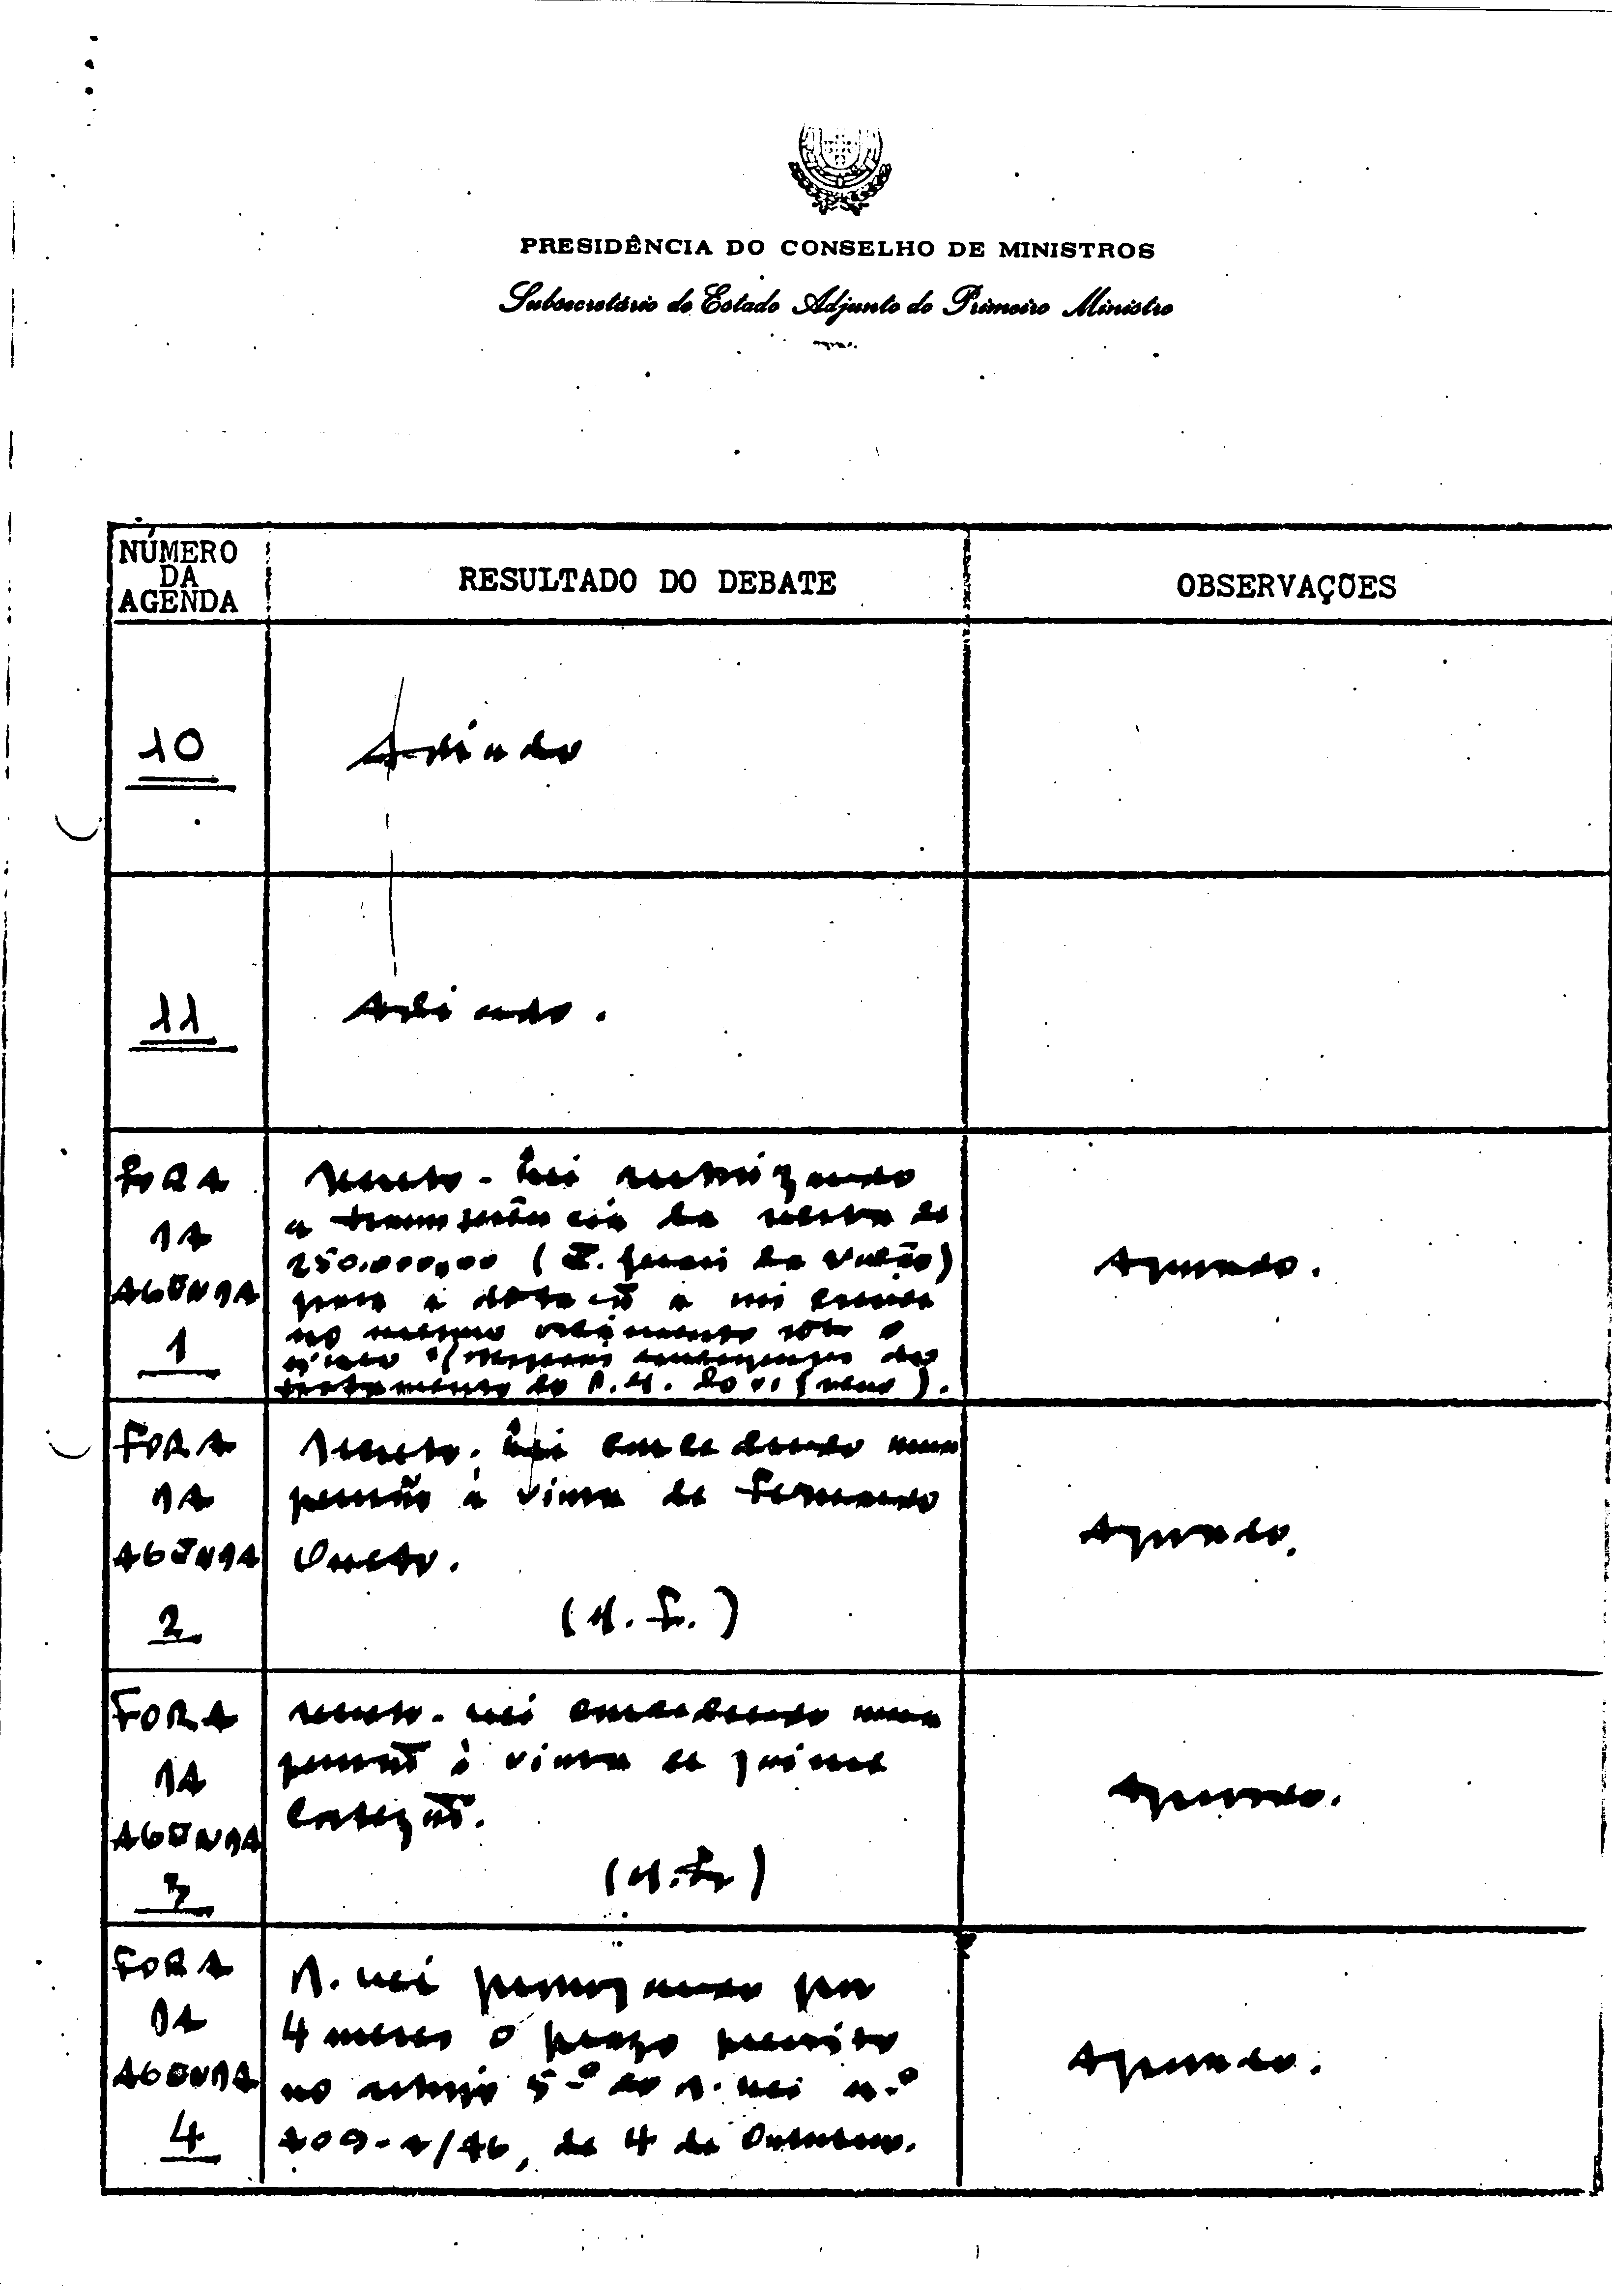 PRESIDÊNCIA DO CONSELHO DE MINISTROS
Subsecretário de Estado Adjunto do Primeiro Ministro
NÚMERO
DA
AGENDA
RESULTADO DO DEBATE
OBSERVAÇÕES
10
Adiado
11
Adiado.
FORA
DA
AGENDA
1
Decreto-Lei autorizando
a transferência da verba de
250.000,00
para a dotação a inscrever
no mesmo orçamento sob o
Aprovado.
FORA
DA
AGENDA
2
Decreto-Lei concedendo uma
pensão à viúva de Fernando
(M.F.)
Aprovado.
FORA
DA
AGENDA
3
Decreto-Lei concedendo uma
pensão à viúva de Jaime
Cortezão.
(M.F.)
Aprovado.
FORA
DA
AGENDA
4
D. Lei prorrogando por
4 meses o prazo previsto
no artigo 5.º do D. Lei n.º
709-A/76, de 4 de Outubro.
Aprovado.